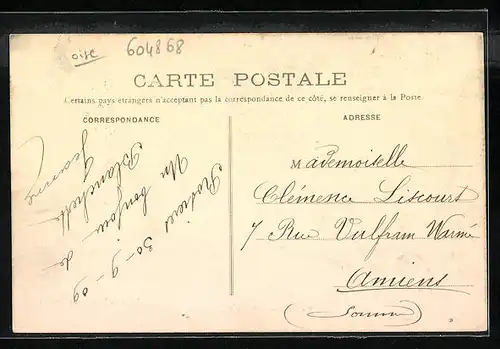 oise
604868
CARTE POSTALE
Certains pays étrangers n'acceptant pas la correspondance de ce côté, se renseigner à la Poste
CORRESPONDANCE
ADRESSE
30-9-09
Un bonjour de
Blanchette
Mademoiselle
Clémence Liscourt
7 Rue Vulfram Warmé
Amiens
(Somme)